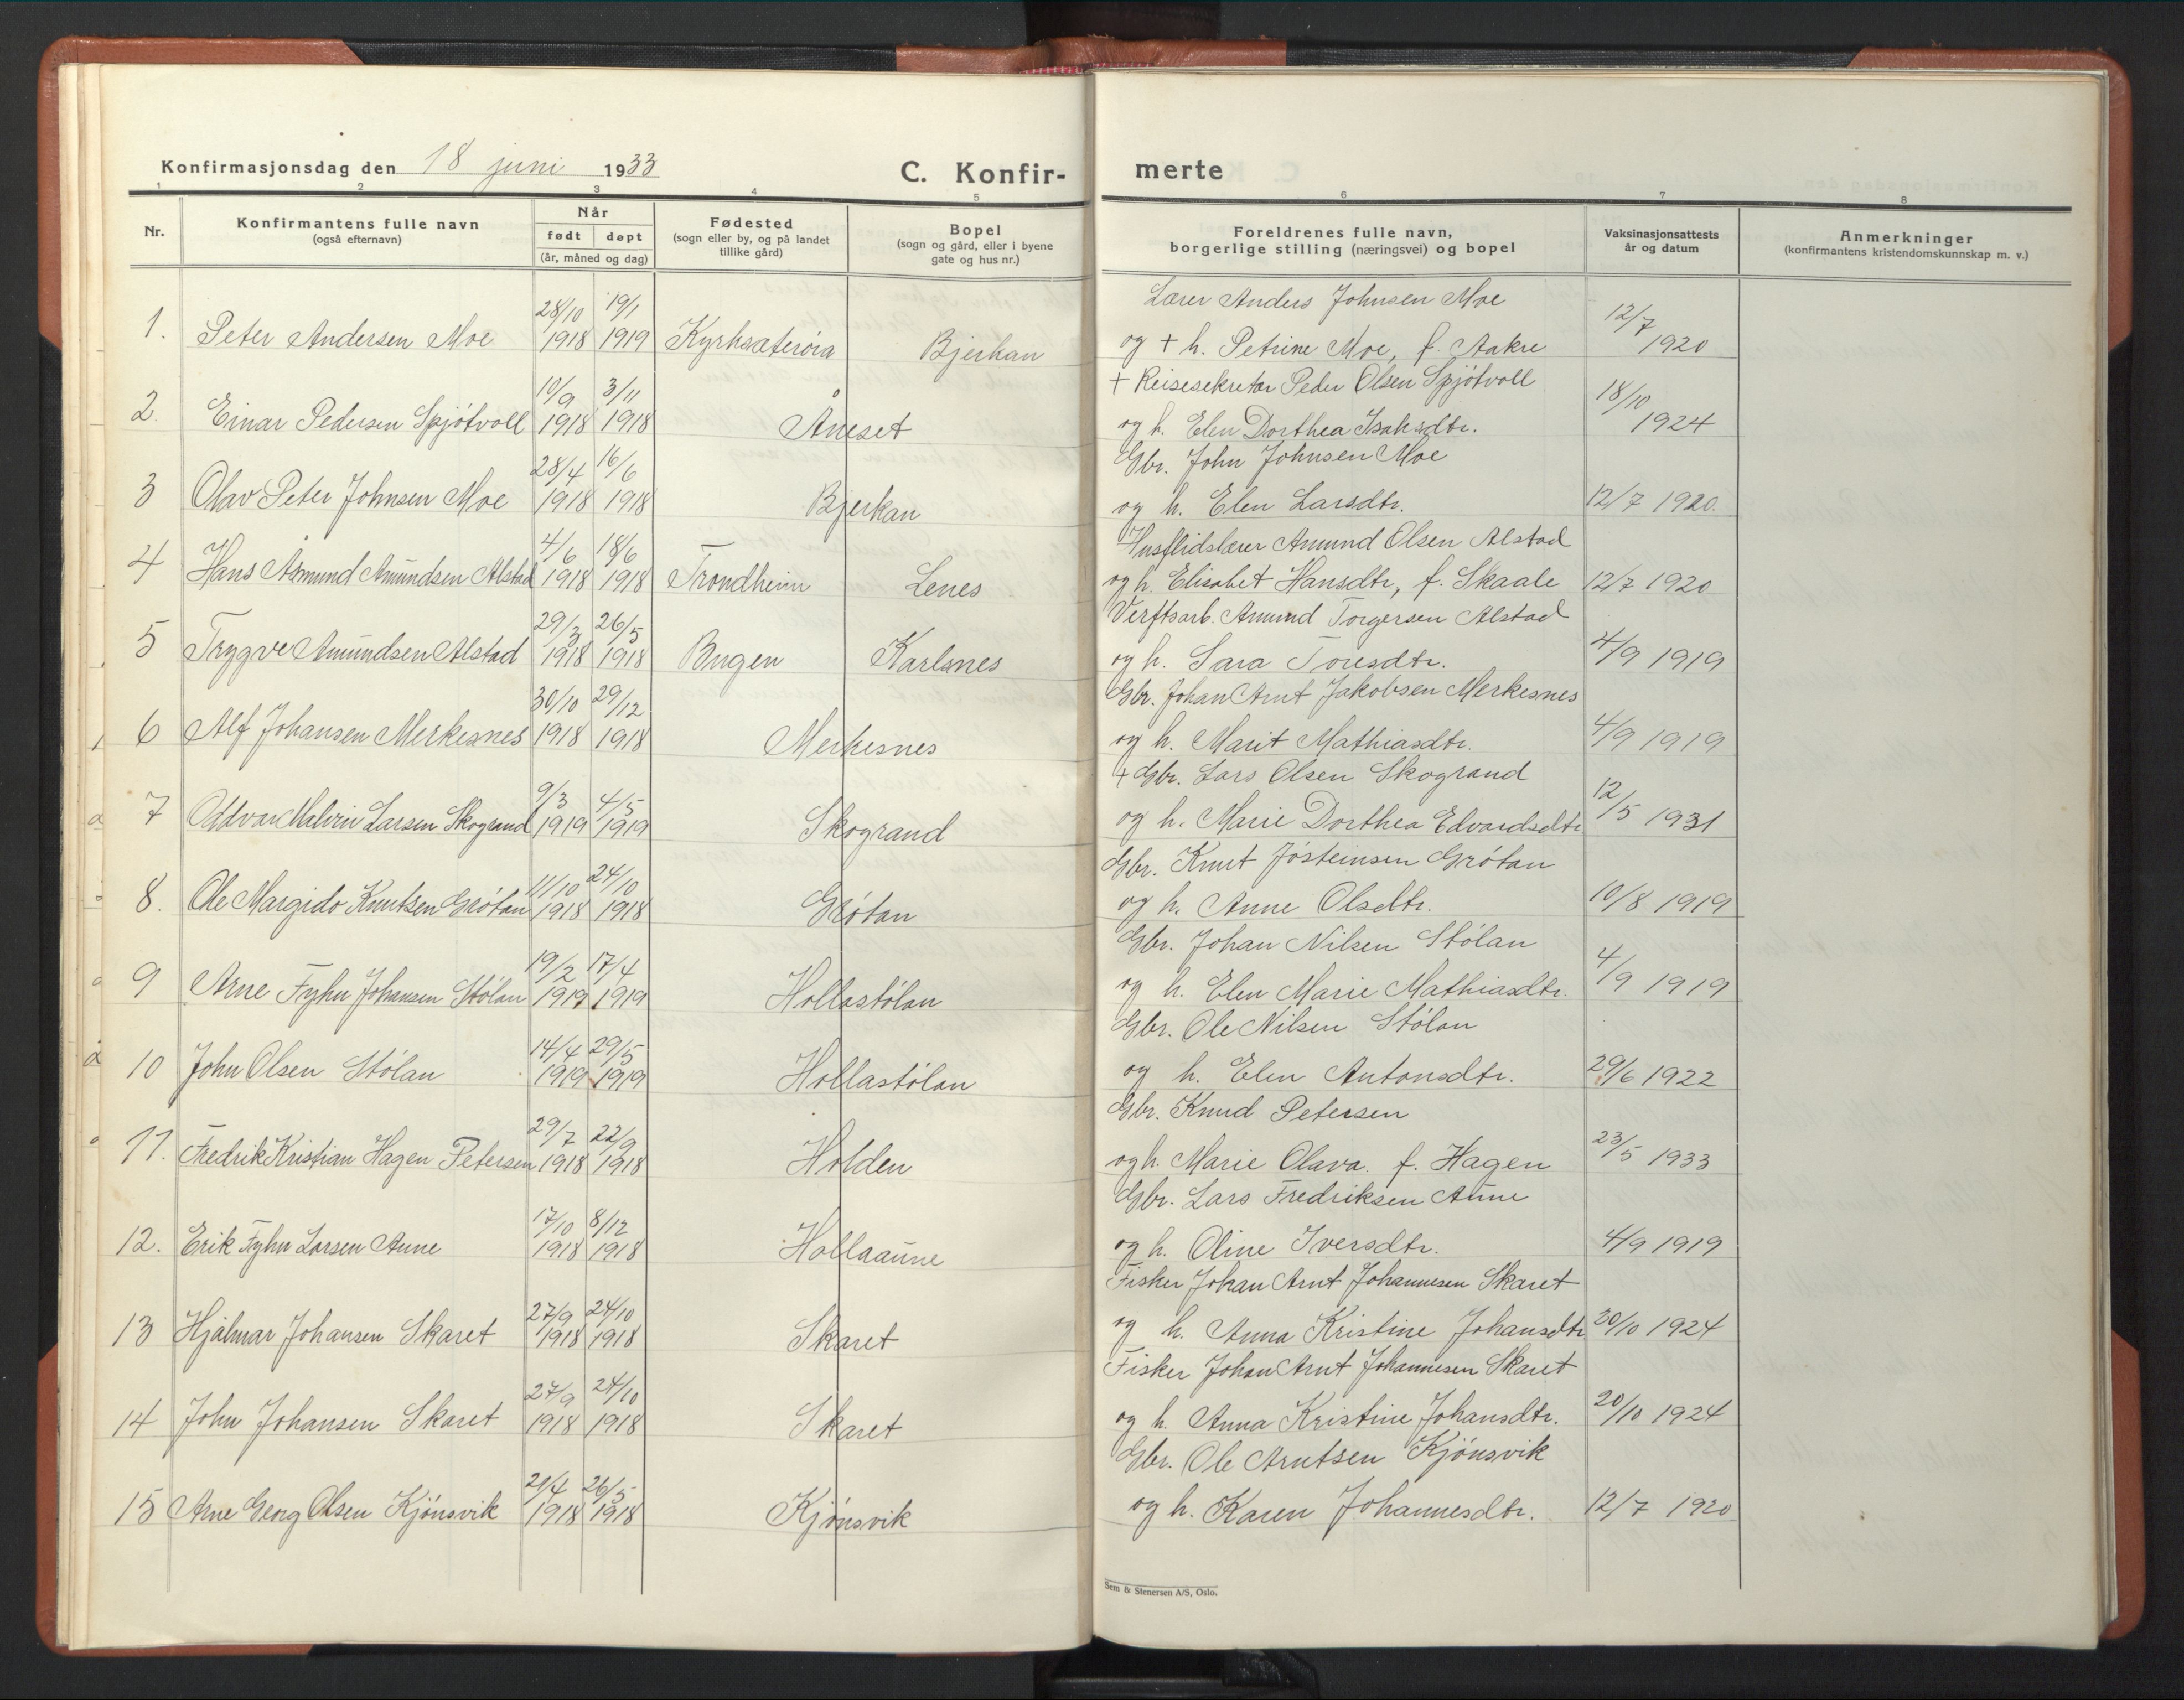 Konfirmasjonsdag den 18 juni 1933
C. Konfir-
merte
1 2 3 4 5 6 7 8
Nr.
Konfirmantens fulle navn
(også efternavn)
Når
født døpt
(år, måned og dag)
Fødested
(sogn eller by, og på landet
tillike gård)
Bopel
(sogn og gård, eller i byene
gate og hus nr.)
Foreldrenes fulle navn,
borgerlige stilling (næringsvei) og bopel
Vaksinasjonsattests
år og datum
Anmerkninger
(konfirmantens kristendomskunnskap m. v.)
28/10 19/1 Lærer Anders Johnsen Moe 12/7
1. Peter Andersen Moe 1918 1919 Kyrksæterøra Bjerkan og + h. Petrine Moe, f. Aakre 1920
10/9 3/11 + Reisesekretær Peder Olsen Spjøtvoll 18/10
2. Einar Pedersen Spjøtvoll 1918 1918 Åneset og h. Elen Dorthea Isaksdtr. 1924
28/4 16/6 Gbr. John Johnsen Moe
3 Olav Peter Johnsen Moe 1918 1918 Bjerkan og h. Elen Larsdtr. 12/7 1920.
4/6 18/6 Husflidslærer Amund Olsen Alstad
4 Hans Asmund Amundsen Alstad 1918 1918 Trondheim Lenes og h. Elisabet Hansdtr, f. Skaale 12/7 1920
29/3 26/5 Verftsarb. Amund Torgersen Alstad
5 Trygve Amundsen Alstad 1918 1918 Bugen Karlsnes og h. Sara Toresdtr. 4/9 1919
30/10 29/12 Gbr. Johan Arnt Jakobsen Merkesnes
6 Alf Johansen Merkesnes 1918 1918 Merkesnes og h. Marit Mathiasdtr. 4/9 1919
9/3 4/5 + Gbr. Lars Olsen Skogrand
7 Oddvar Malvin Larsen Skogrand 1919 1919 Skogrand og h. Marie Dorthea Edvardsdtr 12/5 1931
11/10 24/10 Gbr. Knut Jósteinsen Grótan
8. Ole Margido Knutsen Grótan 1918 1918 Grótan og h. Anne Olsdtr. 10/8 1919
19/2 17/4 Gbr. Johan Nilsen Stólan
9 Arne Fyhn Johansen Stólan 1919 1919 Hollastólan og h. Elen Marie Mathiasdtr. 4/9 1919
14/4 29/5 Gbr. Ole Nilsen Stólan
10 John Olsen Stólan 1919 1919 Hollastólan og h. Elen Antonsdtr. 29/6 1922
29/7 22/9 Gbr. Knud Petersen
11. Fredrik Kristian Hagen Petersen 1918 1918 Holden og h. Marie Olava. f. Hagen 23/5 1933
17/10 8/12 Gbr. Lars Fredriksen Aune
12. Erik Fyhn Larsen Aune 1918 1918 Hollaaune og h. Oline Iversdtr. 4/9 1919
27/9 24/10 Fisker Johan Arnt Johannesen Skaret
13 Hjalmar Johansen Skaret 1918 1918 Skaret og h. Anna Kristine Johansdtr 20/10 1924
27/9 24/10 Fisker Johan Arnt Johannesen Skaret
14 John Johansen Skaret 1918 1918 Skaret og h. Anna Kristine Johansdtr. 20/10 1924
21/4 26/5 Gbr. Ole Arntsen Kjónsvik
15 Arne Georg Olsen Kjónsvik 1918 1918 Kjónsvik og h. Karen Johannesdtr. 12/7 1920
Sem & Stenersen A/S, Oslo.